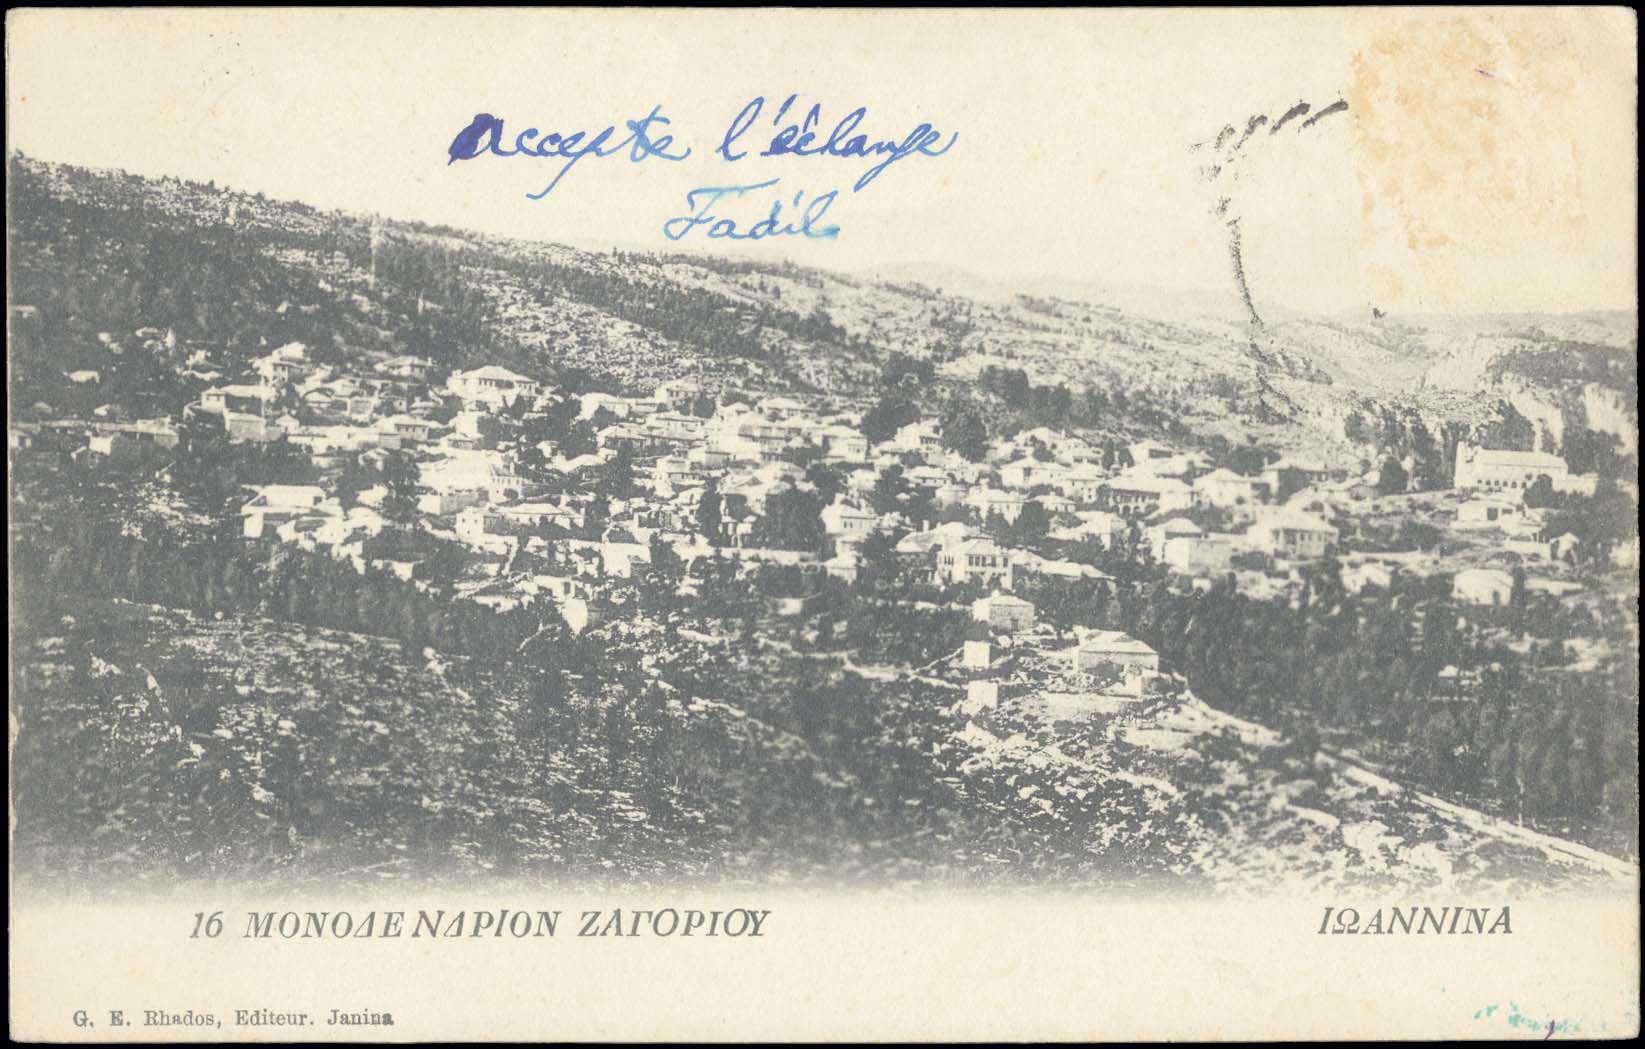 Accepte l'échange
Fadil
16 ΜΟΝΟΔΕΝΔΡΙΟΝ ΖΑΓΟΡΙΟΥ
ΙΩΑΝΝΙΝΑ
G. E. Rhados, Editeur. Janina